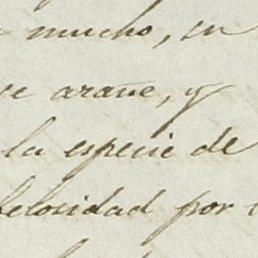 mucho, en
arañe, y
la especie de
felocidad por